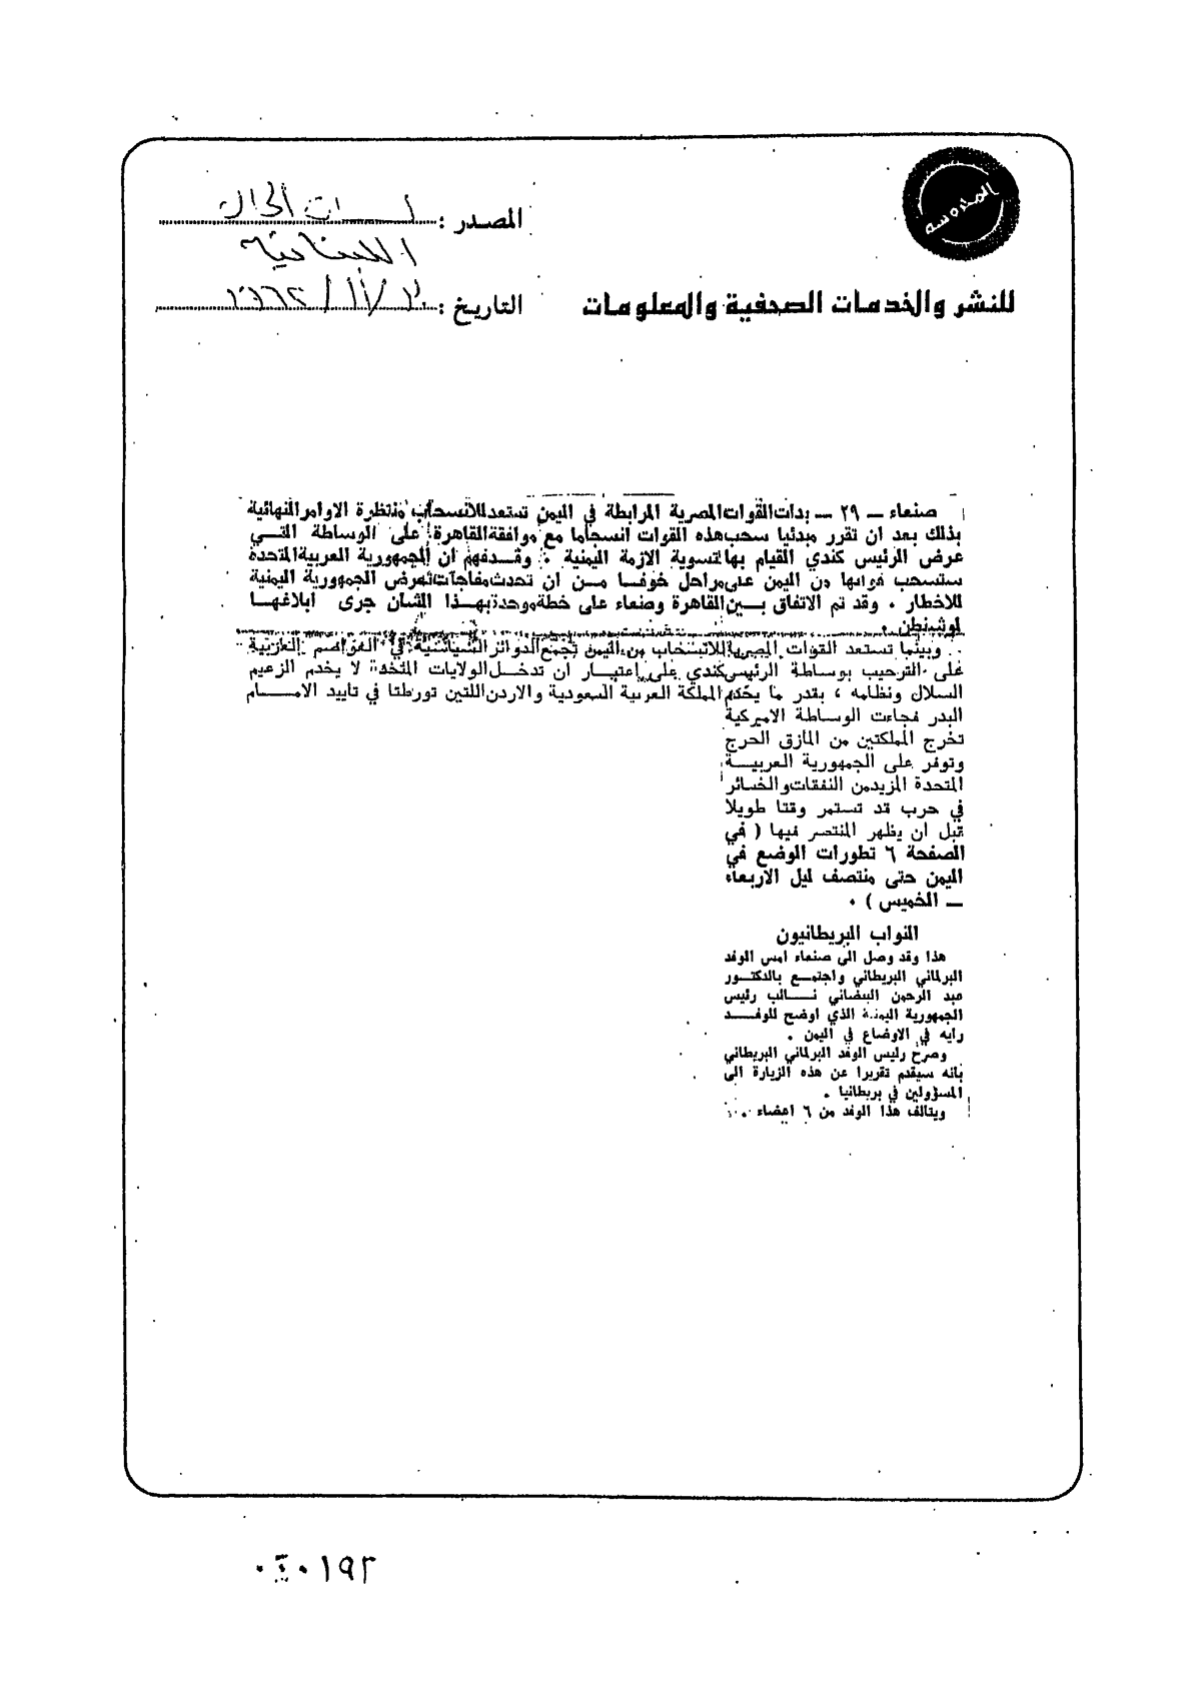 المدرسه
المصدر : لسان الحال
اللبنانية
للنشر والخدمات الصحفية والمعلومات
التاريخ : ٣٠/١١/١٩٦٢
صنعاء – ٢٩ – بدات القوات المصرية المرابطة في اليمن تستعد للانسحاب منتظرة الاوامر النهائية
بذلك بعد ان تقرر مبدئيا سحب هذه القوات انسجاما مع موافقة القاهرة على الوساطة التي
عرض الرئيس كندي القيام بها لتسوية الازمة اليمنية . وقد فهم ان الجمهورية العربية المتحدة
ستسحب قواتها من اليمن على مراحل خوفا من ان تحدث مفاجآت تعرض الجمهورية اليمنية
للاخطار . وقد تم الاتفاق بين القاهرة وصنعاء على خطة موحدة بهذا الشان جرى ابلاغها
لوشنطن .
وبينما تستعد القوات المصرية للانسحاب من اليمن تجمع الدوائر السياسية في العواصم العربية
على الترحيب بوساطة الرئيس كندي على اعتبار ان تدخل الولايات المتحدة لا يخدم الزعيم
السلال ونظامه ، بقدر ما يخدم المملكة العربية السعودية والاردن اللتين تورطتا في تاييد الامام
البدر فجاءت الوساطة الاميركية
تخرج المملكتين من المازق الحرج
وتوفر على الجمهورية العربية
المتحدة المزيد من النفقات والخسائر
في حرب قد تستمر وقتا طويلا
قبل ان يظهر المنتصر فيها ( في
الصفحة ٦ تطورات الوضع في
اليمن حتى منتصف ليل الاربعاء
– الخميس ) .
النواب البريطانيون
هذا وقد وصل الى صنعاء امس الوفد
البرلماني البريطاني واجتمع بالدكتور
عبد الرحمن البيضاني نائب رئيس
الجمهورية اليمنية الذي اوضح للوفد
رايه في الاوضاع في اليمن .
وصرح رئيس الوفد البرلماني البريطاني
بانه سيقدم تقريرا عن هذه الزيارة الى
المسؤولين في بريطانيا .
ويتالف هذا الوفد من ٦ اعضاء .
٠٤٠١٩٢